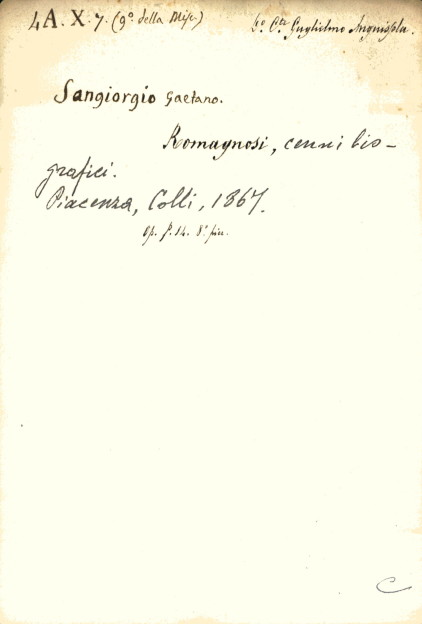 4A. X. 7. (9º della Misc.) Dº Cte Guglielmo Anguissola.
Sangiorgio Gaetano.
Romagnosi, cenni bio-
grafici.
Piacenza, Colli, 1867.
Op. p. 14. 8º picc.
C